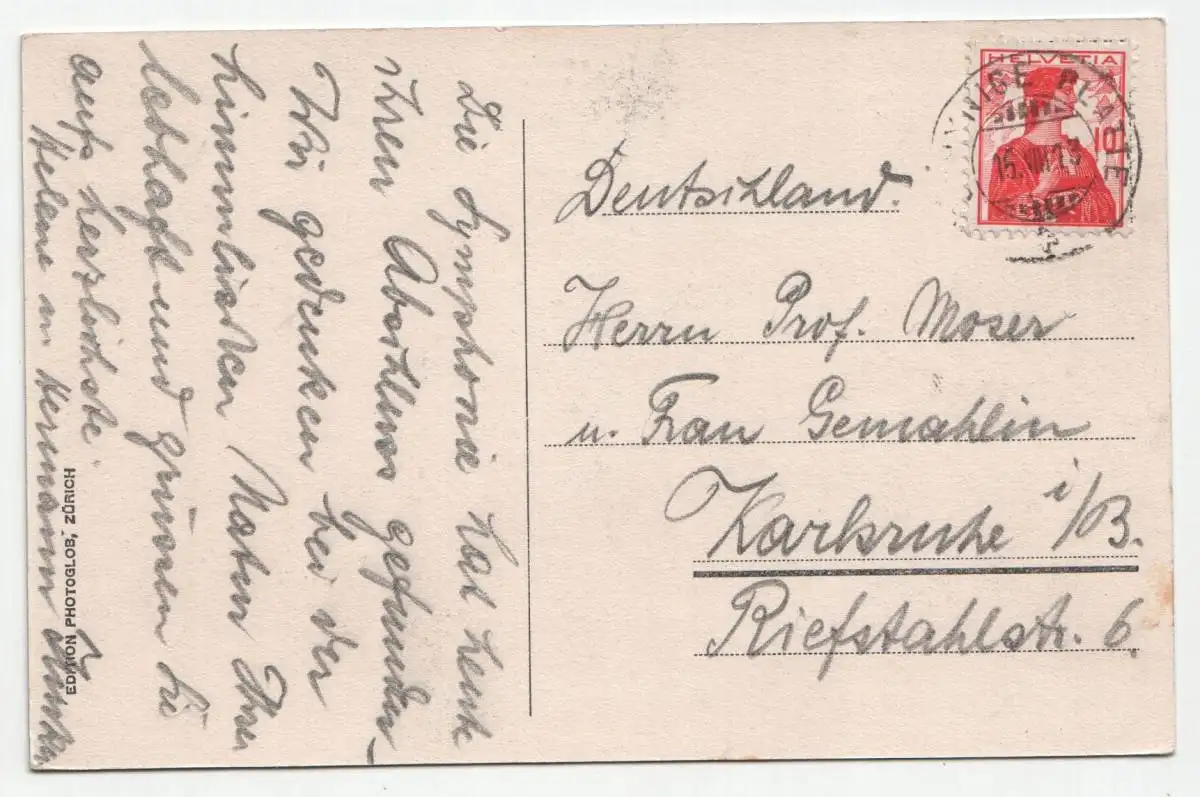 Die Symphonie hat heute
ihren Abschluss gefunden
Wir gedenken bei der
himmlischen Natur Ihrer
lebhaft und grüssen Sie
aufs herzlichste.
Helene u Hermann
EDITION PHOTOGLOB, ZÜRICH
HELVETIA
10
YNIGE PLATTE
15.VII.13
Deutschland.
Herrn Prof. Moser
u. Frau Gemahlin
Karlsruhe i/B.
Riefstahlstr. 6.